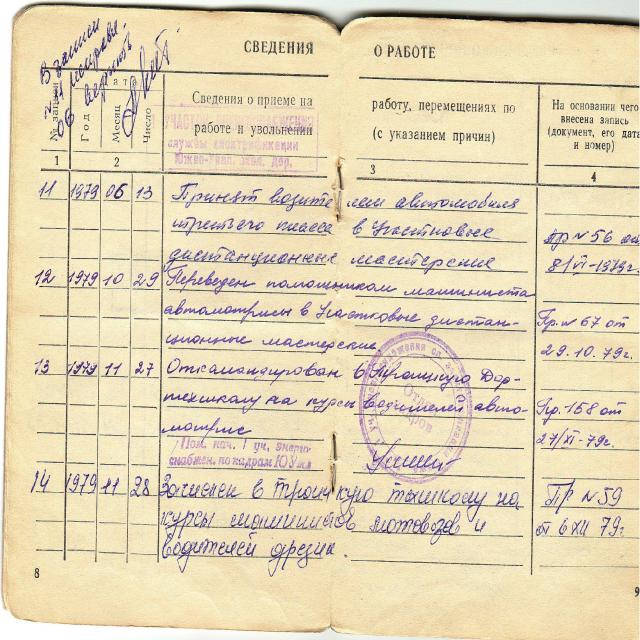 В записи
№ 11 исправл.
06 верить
СВЕДЕНИЯ О РАБОТЕ
№ записи
Дата
Год
Месяц
Число
Сведения о приеме на работу, перемещениях по
работе и увольнении (с указанием причин)
На основании чего
внесена запись
(документ, его дата
и номер)
УЧАСТОК ЭНЕРГОСНАБЖЕНИЯ
службы электрификации
Южно-Урал. жел. дор.
1 2 3 4
11 1979 06 13 Принят водителем автомобиля
третьего класса в Участковые
дистанционные мастерские
Пр №56 от
8/VI-1979г
12 1979 10 29 Переведен помошником машиниста
автомотрисы в Участковые дистан-
ционные мастерские
Пр. № 67 от
29.10.79г.
13 1979 11 27 Откамандирован в Троицкую Дор-
техшколу на курсы водителей авто-
мотрис
Пр. 158 от
27/XI-79г.
Пом. нач. 1 уч. энерго-
снабжен. по кадрам ЮУжд
Отдел
кадров
14 1979 11 28 Зачислен в Троицкую техшколу на
курсы машинистов мотовозов и
водителей дрезин.
Пр №59
от 6 XII 79г.
8
9